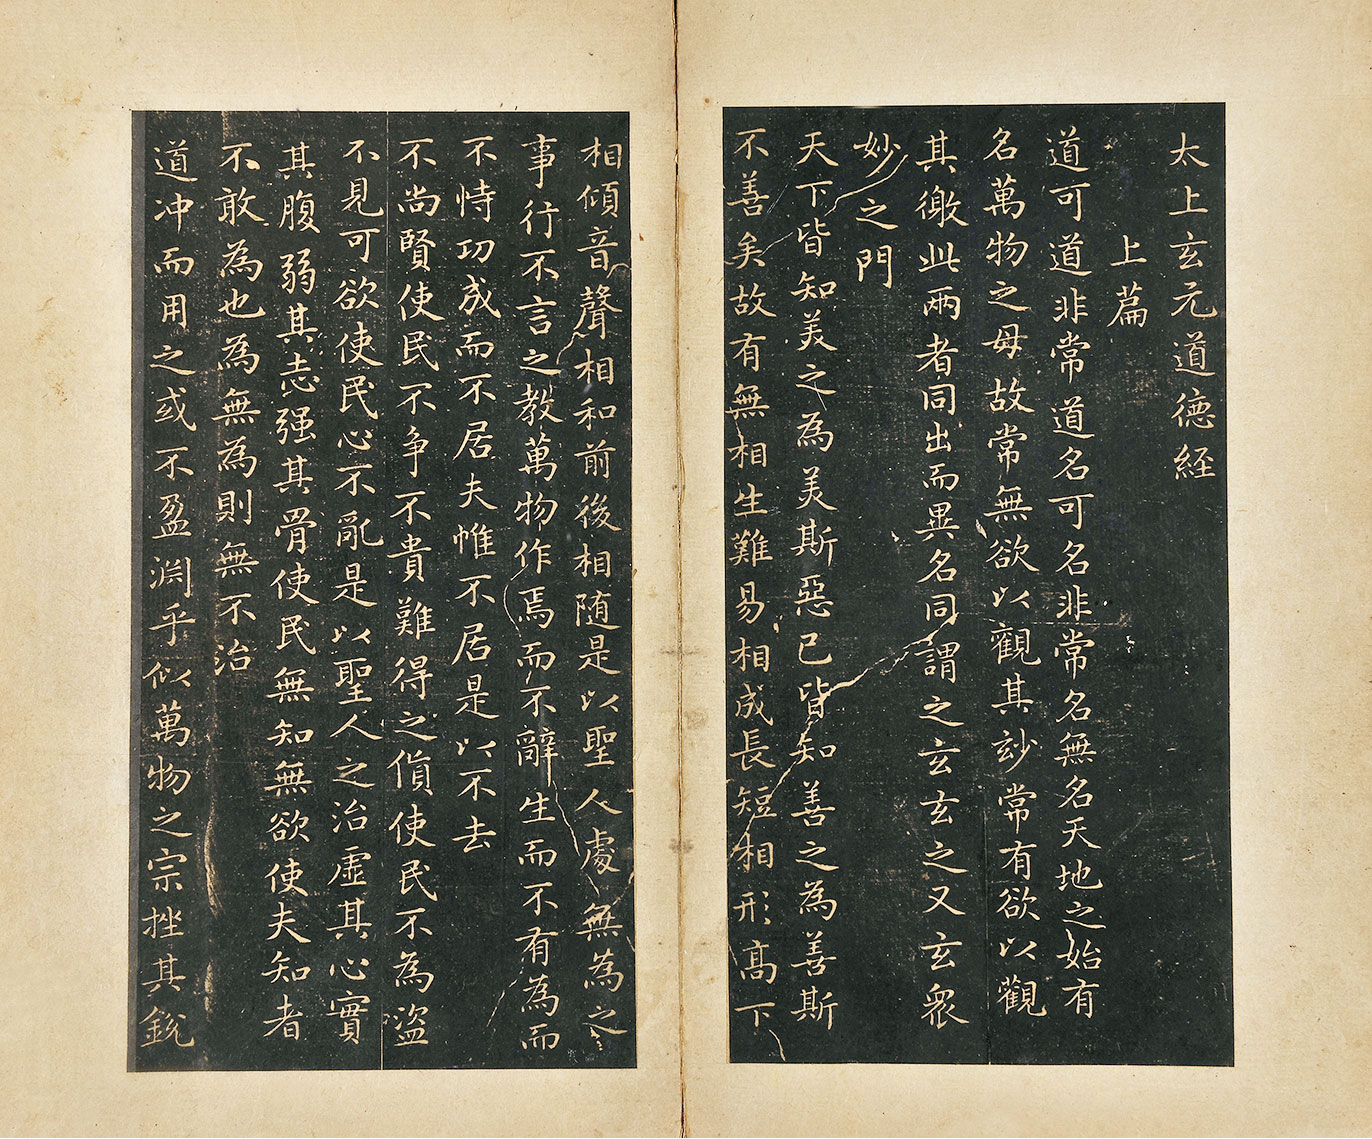 太上玄元道德経
上篇
道可道非常道名可名非常名無名天地之始有
名萬物之母故常無欲以觀其玅常有欲以觀
其徼此兩者同出而異名同謂之玄玄之又玄衆
妙之門
天下皆知美之為美斯惡已皆知善之為善斯
不善矣故有無相生難易相成長短相形高下
相傾音聲相和前後相随是以聖人處無為之
事行不言之教萬物作焉而不辭生而不有為而
不恃功成而不居夫惟不居是以不去
不尚賢使民不争不貴難得之貨使民不為盜
不見可欲使民心不亂是以聖人之治虛其心實
其腹弱其志强其骨使民無知無欲使夫知者
不敢為也為無為則無不治
道冲而用之或不盈淵乎似萬物之宗挫其銳